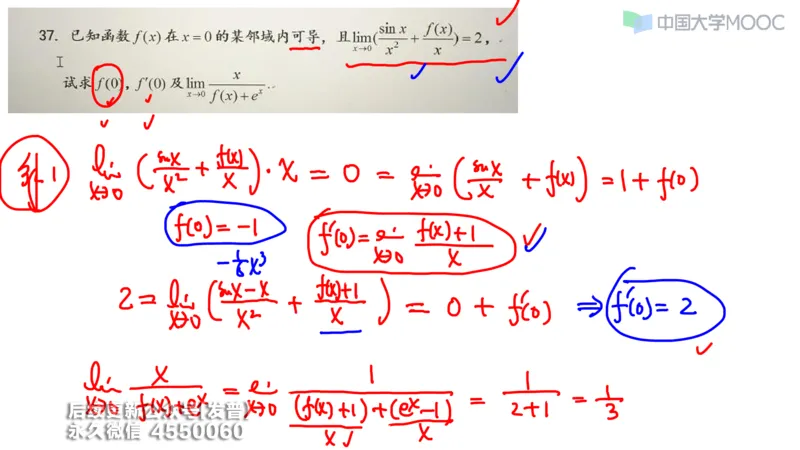 中国大学MOOC
37. 已知函数 f(x) 在 x=0 的某邻域内可导，且 lim_{x→0}(sin x / x² + f(x)/x) = 2，
试求 f(0)，f′(0) 及 lim_{x→0} x/(f(x)+eˣ).
解1 lim_{x→0} (sinx/x² + f(x)/x)·x = 0 = lim_{x→0} (sinx/x + f(x)) = 1 + f(0)
f(0) = -1 f′(0) = lim_{x→0} (f(x)+1)/x
-1/6 x³
2 = lim_{x→0} ((sinx-x)/x² + (f(x)+1)/x) = 0 + f′(0) ⇒ f′(0) = 2
lim_{x→0} x/(f(x)+eˣ) = lim_{x→0} 1/((f(x)+1)/x + (eˣ-1)/x) = 1/(2+1) = 1/3
永久微信 4550060